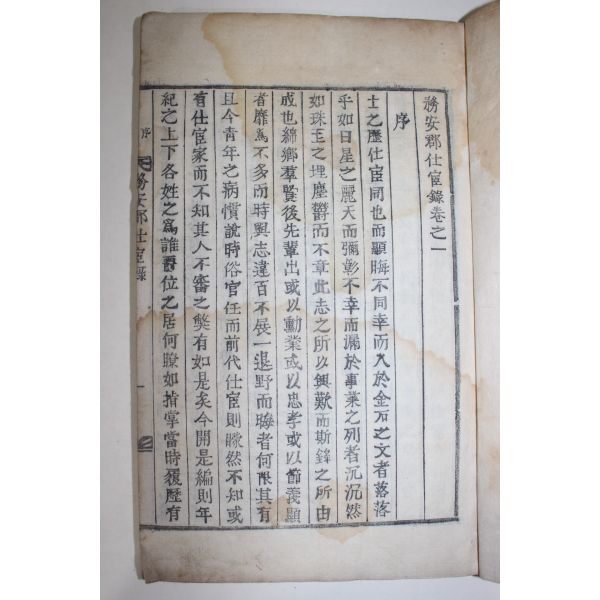 務安郡仕宦錄卷之一
序
士之歷仕宦同也而顯晦不同幸而入於金石之文者落落
乎如日星之麗天而彌彰不幸而漏於事業之列者沉沉然
如珠玉之埋塵欝而不章此志之所以興歎而斯錄之所由
成也綿鄉羣賢後先輩出或以勳業或以忠孝或以節義顯
者靡爲不多而時與志違百不展一退野而晦者何限其有
且今青年之病慣說時俗官任而前代仕宦則矇然不知或
有仕宦家而不知其人不審之獘有如是矣今開是編則年
紀之上下各姓之爲誰爵位之居何瞭如指掌當時履歷有
序
務安郡仕宦錄
一